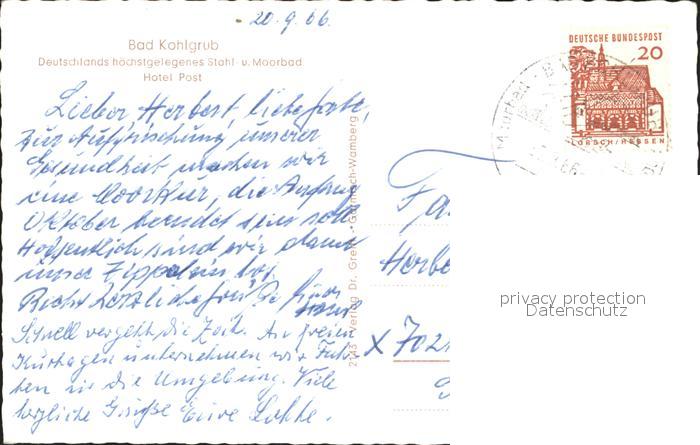 20.9.66.
Bad Kohlgrub
Deutschlands höchstgelegenes Stahl- u. Moorbad
Hotel Post
DEUTSCHE BUNDESPOST
20
LORSCH/HESSEN
Lieber Herbert, liebe
zur Auffrischung unserer
Gesundheit machen wir
eine Moorkur, die Anfang
Oktober beendet sein soll.
Hoffentlich sind wir dann
unser Zipperlein los.
Recht herzliche Grüße Euer
Schnell vergeht die Zeit. An freien
Kurtagen unternehmen wir Fahr-
ten in die Umgebung. Viele
herzliche Grüße Eure Lotte.
2143 Verlag Dr. Grete Garmisch-Wamberg
Herbe
x 702
privacy protection
Datenschutz